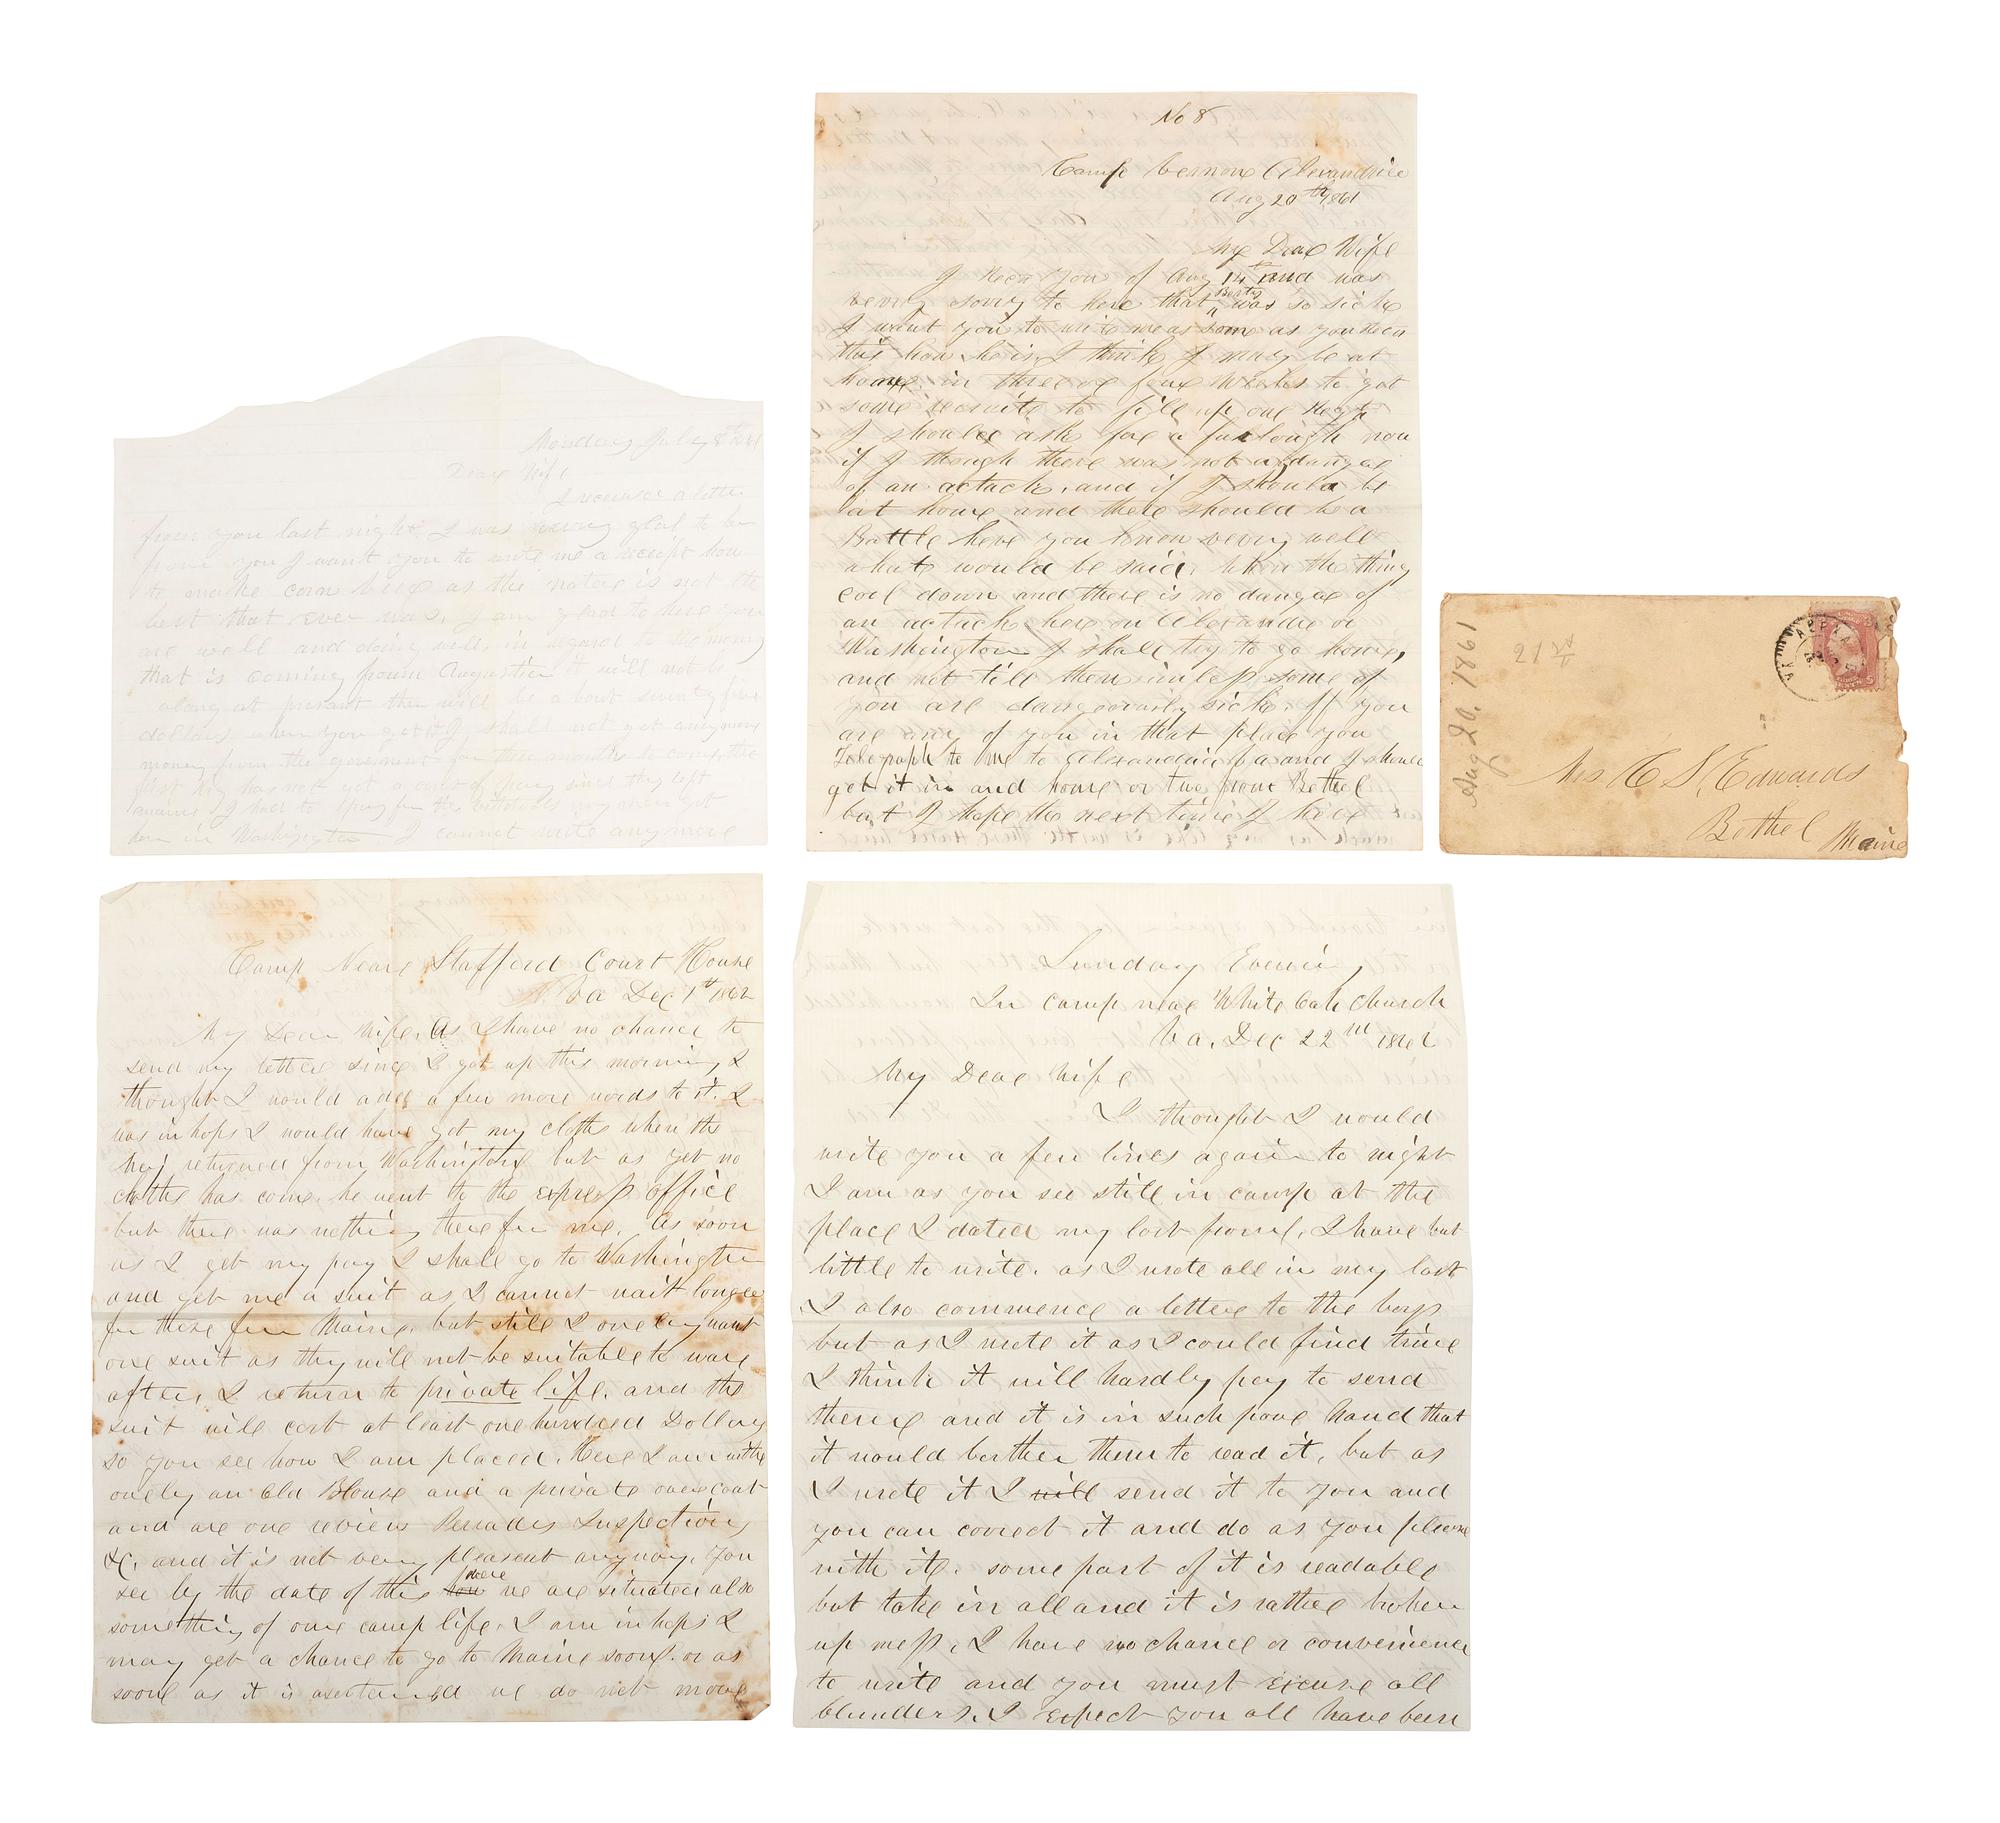 Monday July 8th
Dear Wife
I received a letter
from you last night. I was very glad to her
from you I want you to write me a receipt how
to make corn bred as the water is not the
best that ever was. I am glad to here you
are well and doing well, in regard to the money
that is coming from Augustia it will not be
along at present then will be a bout seventy five
dollars when you get it I shall not get any more
money from the government for two months to come, the
first Reg has not got a cent of pay since they left
maine. I had to
in Washington I cannot write any more
No 8
Camp Vernon Alexandria
Aug 20th 1861
My Dear Wife
I Recd you of Aug 14th and was
verry sorry to here that Berty was so sick
I want you to write me as soon as you Recd
this how he is, I think I may be at
home in three or four weeks to get
some recruits to fill up our Regt
I should ask for a furlough now
if I though there was not a danger
of an actack, and if I should be
at home and there should be a
Battle here you know verry well
what would be said. When the thing
cool down and there is no danger of
an actack here on Alexandria or
Washington I shall try to go home,
and not till then unless some of
you are dangerously sick. If you
are any of you in that place you
Telegraph to me to Alexandria Va and I should
get it in and hour or two from Bethel
but I hope the next time I here
Aug 20, 1861
Mrs C S. Edwards
Bethel Maine
Camp Near Stafford Court House
Va Dec 1st 1862
My Dear Wife. As I have no chance to
send my letter since I got up this morning, I
thought I would add a few more words to it. I
was in hops I would have got my cloths when the
Maj returned from Washington but as yet no
cloths has come. he went to the express office
but there was nothing there for me. As soon
as I get my pay I shall go to Washington
and get me a suit as I cannot wait longer
for those from Maine. but still I onely want
one suit as they will not be suitable to ware
after, I return to private life. and the
suit will cost at least one hundred Dollars
so you see how I am placed. Here I am with
onely an Old Blouse and a private overcoat
and are our reviews Perrades Inspections
&c. and it is not very pleasent anyway. You
see by the date of this how where we are situated also
something of our camp life. I am in hops I
may get a chance to go to Maine soon. or as
soon as it is asertained we do not move
Sunday Evenin,
In camp near White Oak Church
Va. Dec 22nd 1862
My Dear Wife
I thought I would
write you a few lines again to night
I am as you see still in camp at the
place I dated my last from. I have but
little to write. as I wrote all in my last
I also commence a letter to the boys
but as I wrote it as I could find time
I think it will hardly pay to send
them and it is in such poor hand that
it would bother them to read it, but as
I wrote it I will send it to you and
you can correct it and do as you please
with it. some part of it is readable
but take in all and it is rather broken
up mess. I have no chance or convenience
to write and you must excuse all
blunders. I expect you all have been